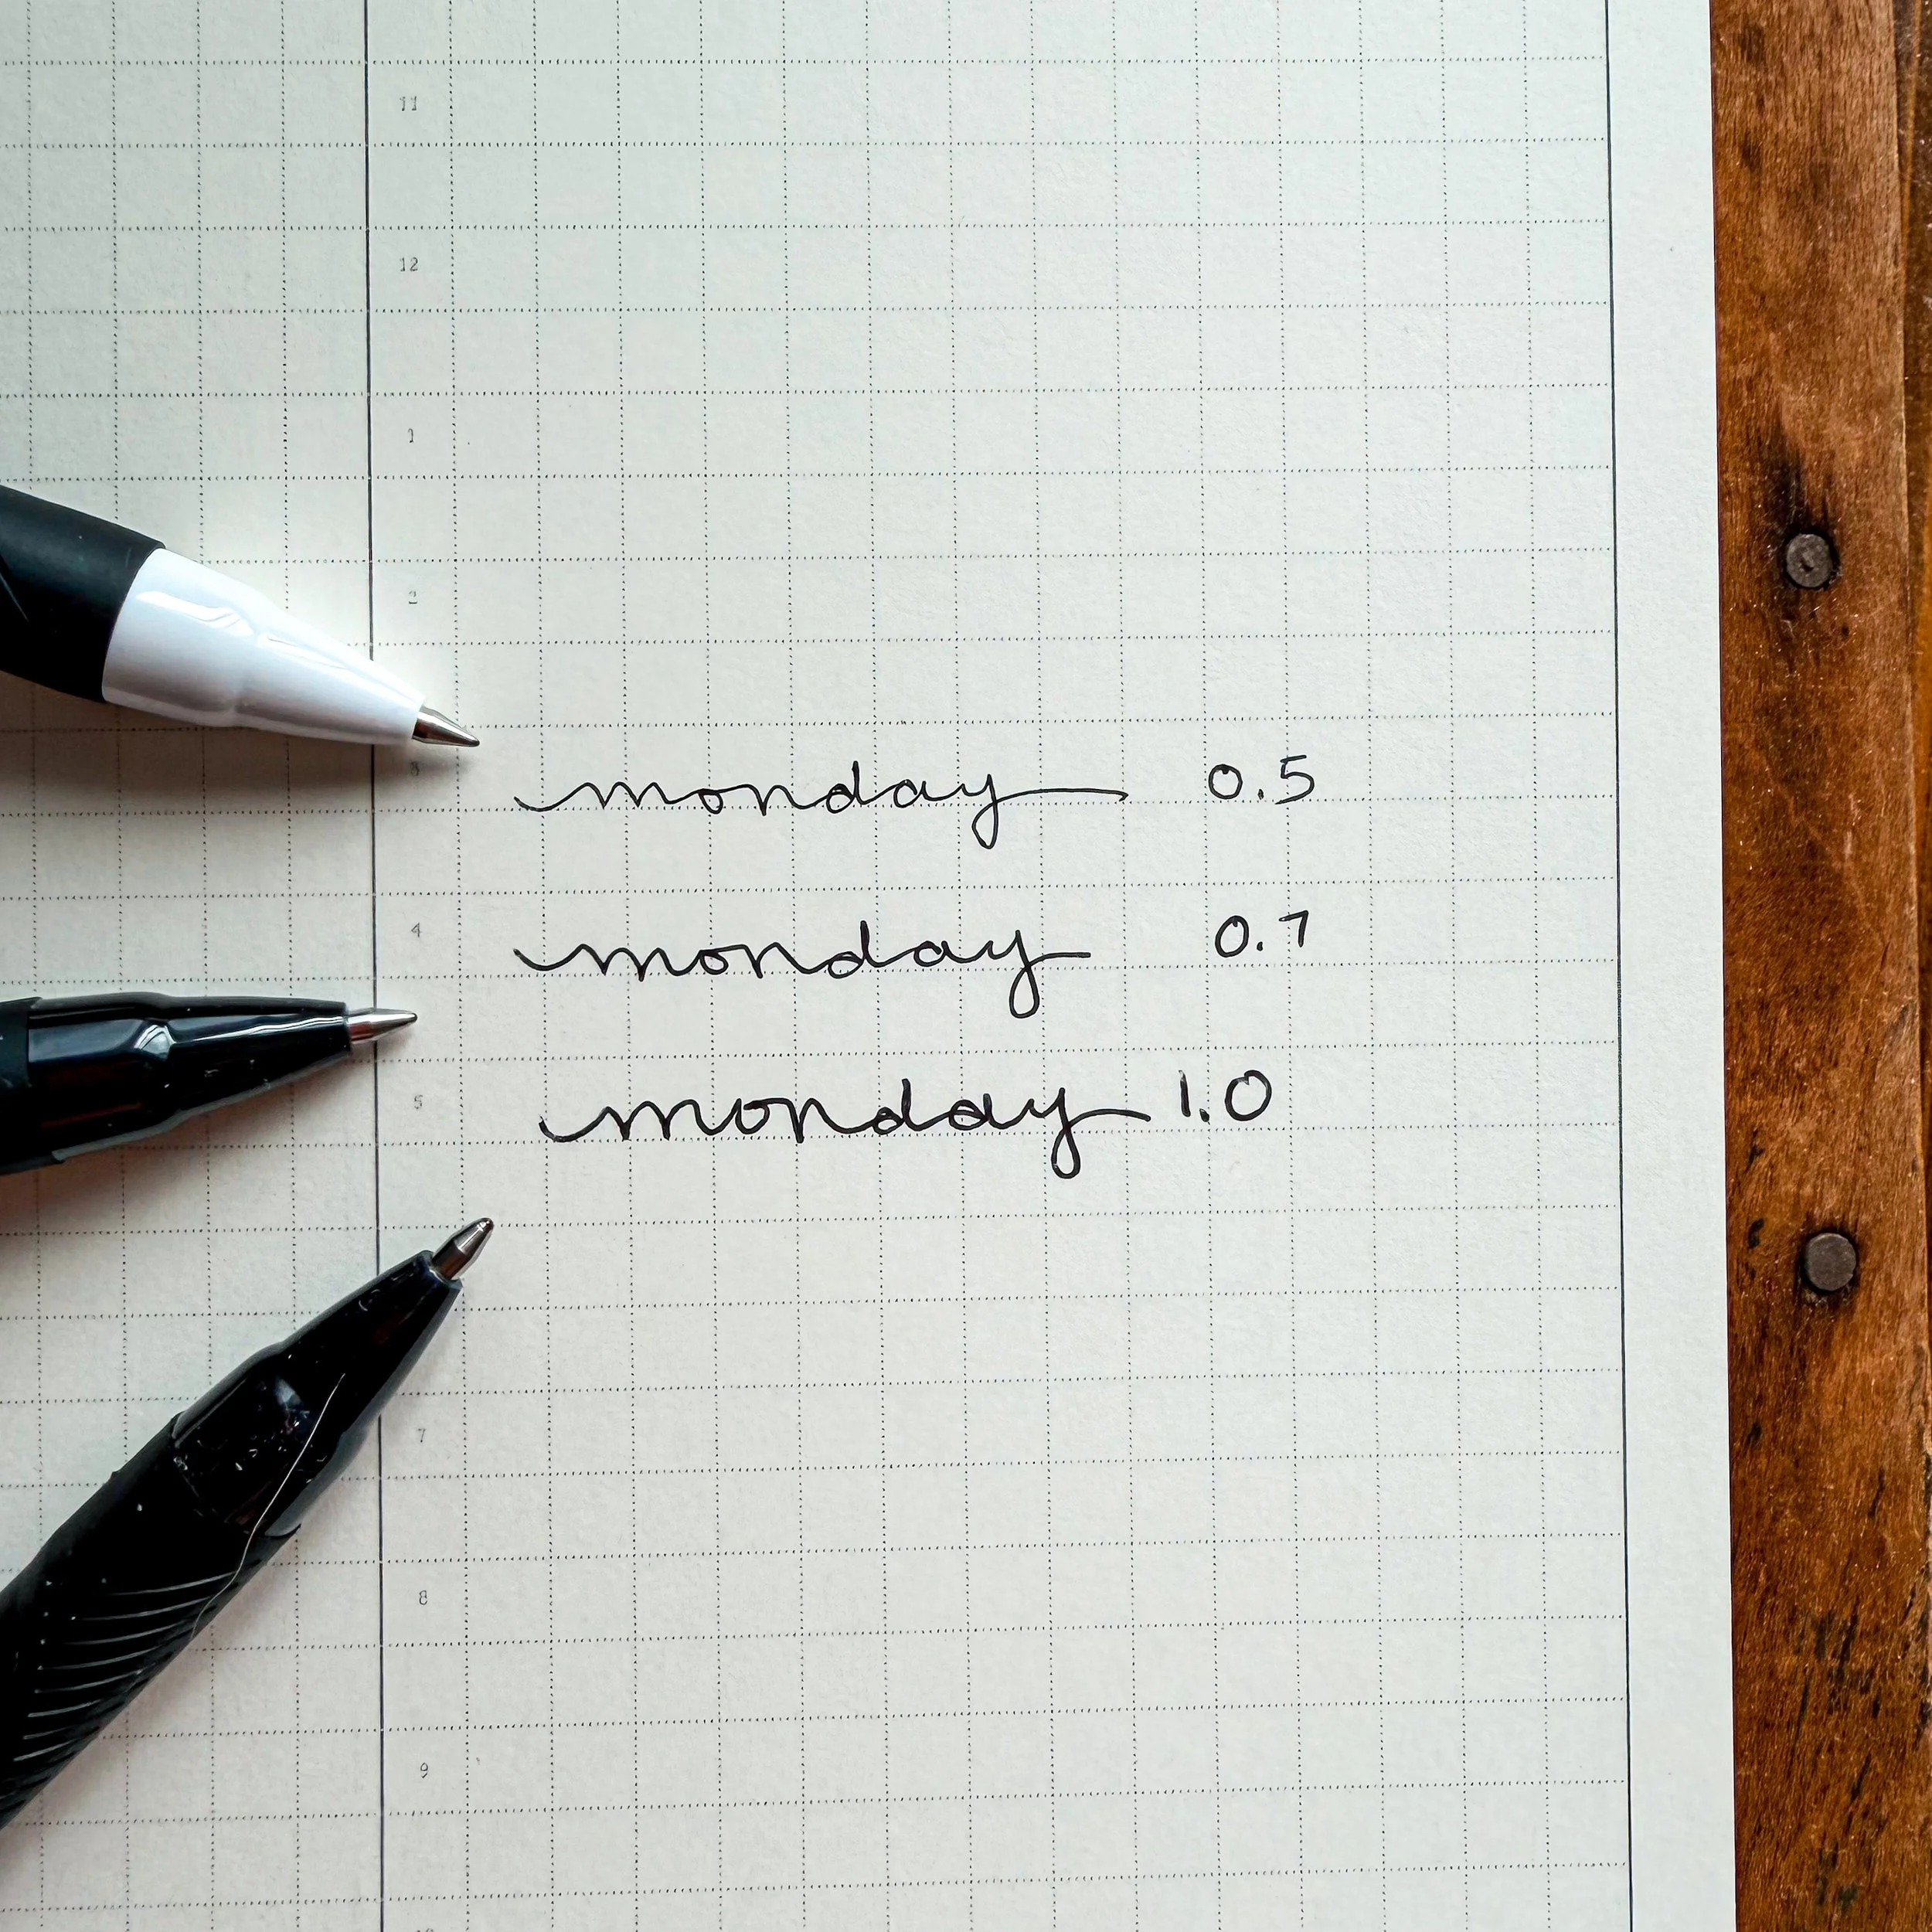 11
12
1
2
3
monday 0.5
4
monday 0.7
5
monday 1.0
7
8
9